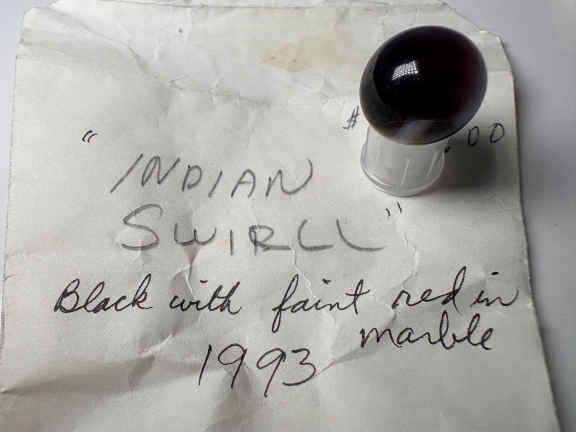 $ .00
"INDIAN
SWIRLL"
Black with faint red in
marble
1993